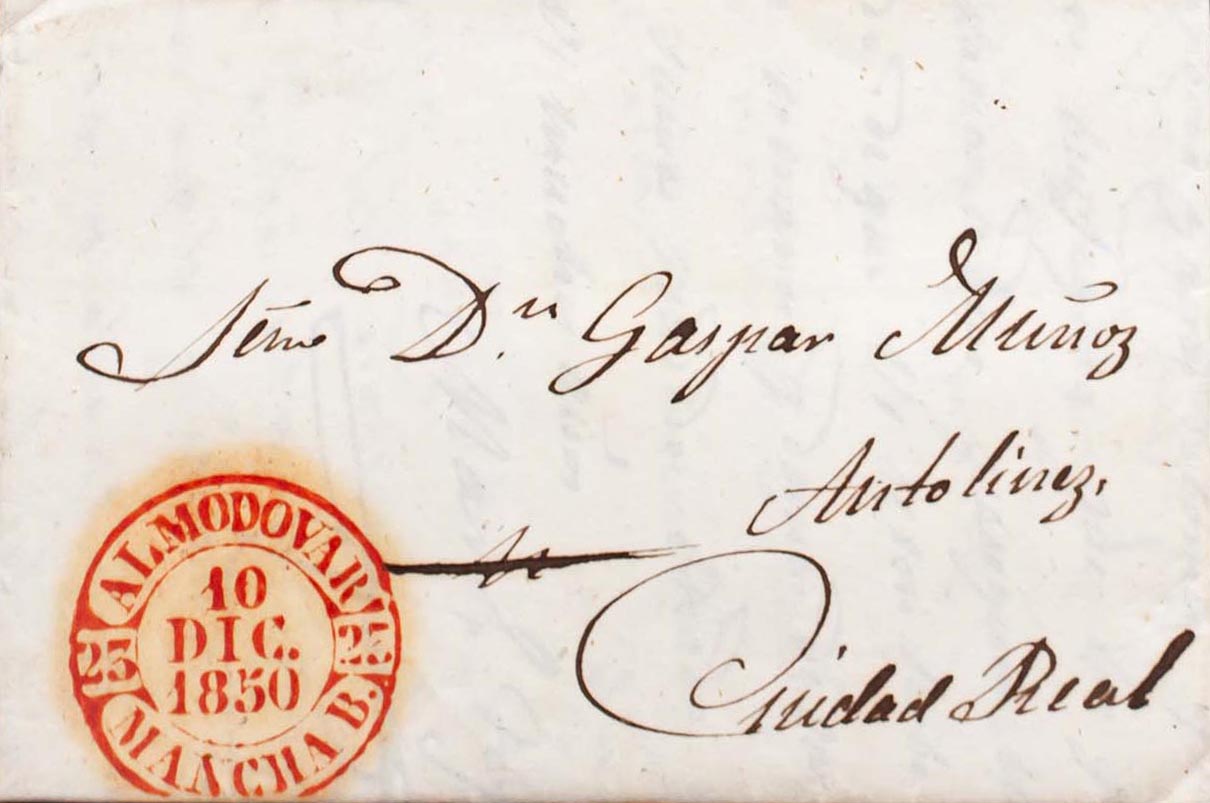 Señor Dⁿ. Gaspar Muñoz
Antolinez,
Ciudad Real
ALMODOVAR
10
DIC.
1850
25 25
MANCHA B.